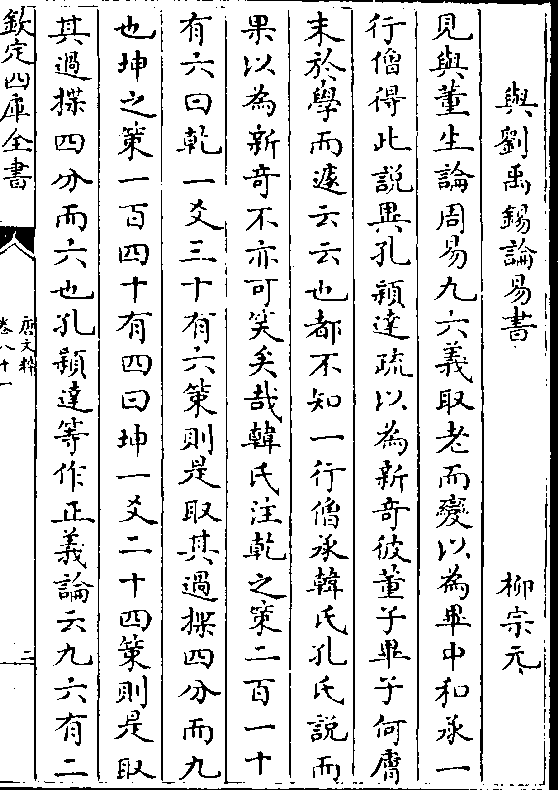 與劉禹錫論易書　柳宗元
見與董生論周易九六義取老而變以為畢中和承一
行僧得此說異孔穎達疏以為新奇彼董子畢子何膚
末於學而遽云云也都不知一行僧承韓氏孔氏說而
果以為新奇不亦可笑矣哉韓氏注乾之策二百一十
有六曰乾一爻三十有六策則是取其過揲四分而九
也坤之策一百四十有四曰坤一爻二十四策則是取
其過揲四分而六也孔穎達等作正義論云九六有二
欽定四庫全書
唐文粹
卷八十一
二